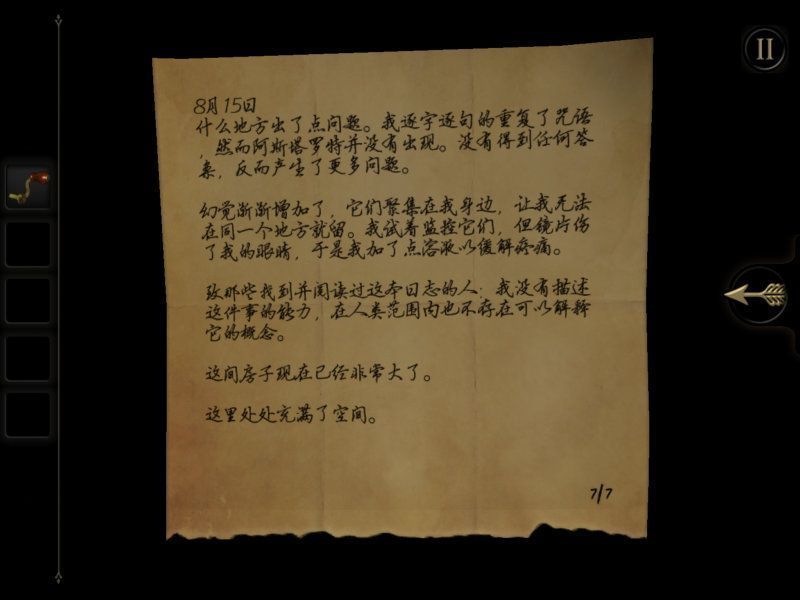 8月15日
什么地方出了点问题。我逐字逐句的重复了咒语
，然而阿斯塔罗特并没有出现。没有得到任何答
案，反而产生了更多问题。
幻觉渐渐增加了，它们聚集在我身边，让我无法
在同一个地方就留。我试着监控它们，但镜片伤
了我的眼睛，于是我加了点溶液以缓解疼痛。
致那些找到并阅读过这本日志的人：我没有描述
这件事的能力，在人类范围内也不存在可以解释
它的概念。
这间房子现在已经非常大了。
这里处处充满了空间。
7/7